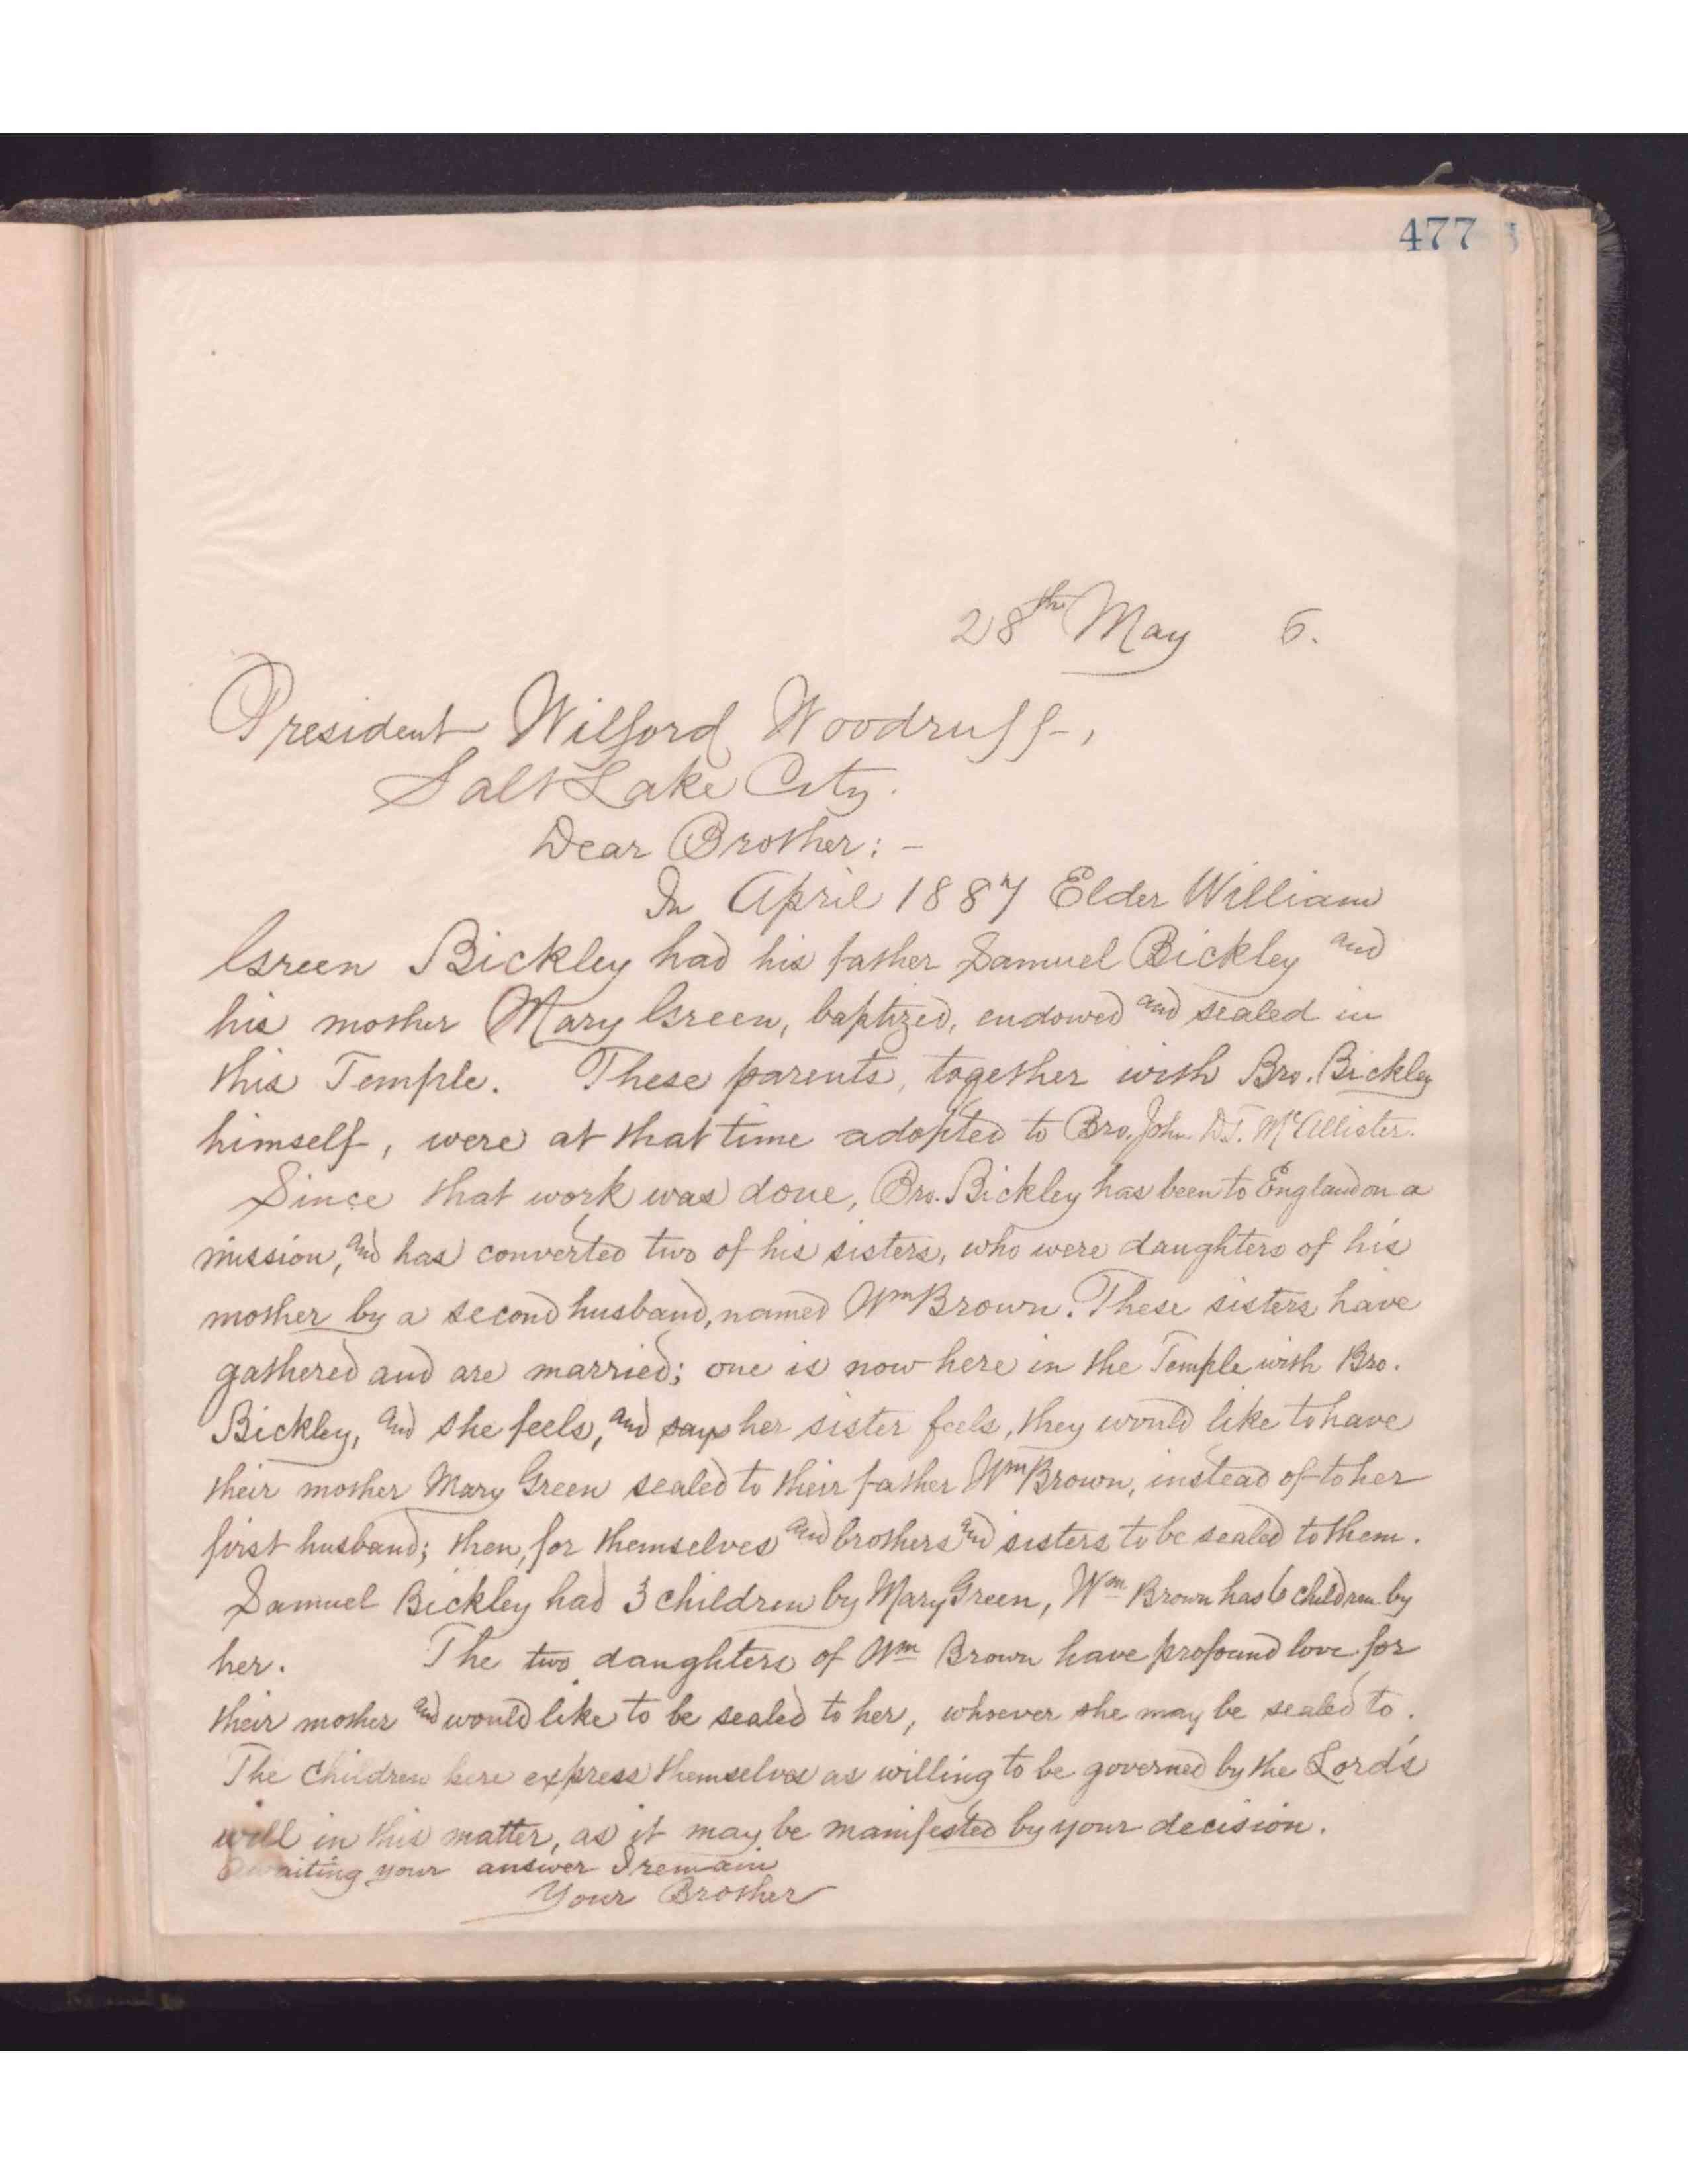 477
28th May 6.
President Wilford Woodruff,
Salt Lake City.
Dear Brother: –
In April 1887 Elder William
Green Bickley had his father Samuel Bickley and
his mother Mary Green, baptized, endowed and sealed in
this Temple. These parents, together with Bro. Bickley
himself, were at that time adopted to Bro. John D.T. McAllister.
Since that work was done, Bro. Bickley has been to England on a
mission, and has converted two of his sisters, who were daughters of his
mother by a second husband, named Wm Brown. These sisters have
gathered and are married; one is now here in the Temple with Bro.
Bickley, and she feels, and says her sister feels, they would like to have
their mother Mary Green sealed to their father Wm Brown, instead of to her
first husband; then, for themselves and brothers and sisters to be sealed to them.
Samuel Bickley had 3 children by Mary Green, Wm Brown has 6 children by
her. The two daughters of Wm Brown have profound love for
their mother and would like to be sealed to her, whoever she may be sealed to.
The children here express themselves as willing to be governed by the Lord's
will in this matter, as it may be manifested by your decision.
Awaiting your answer I remain
Your Brother